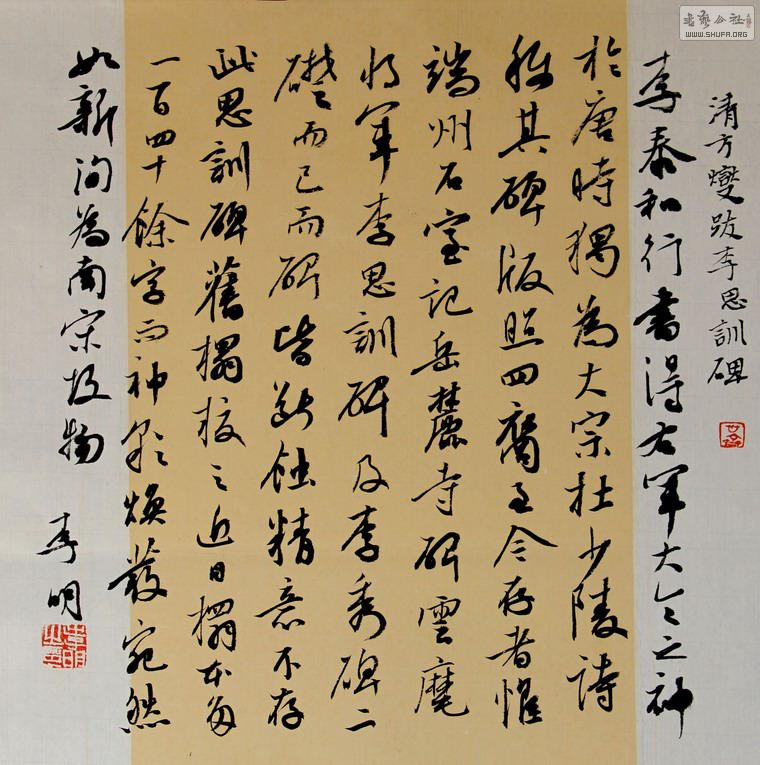 清方燮跋李思訓碑
李泰和行書得右軍大令之神
於唐時獨為大宗杜少陵詩
稱其碑版照四裔至今存者惟
端州石室記岳麓寺碑雲麾
將軍李思訓碑及李秀碑二
礎而已而碑皆斷蝕精意不存
此思訓碑舊榻校之近日榻本多
一百四十餘字而神彩煥發宛然
如新洵為南宋故物
李明
書藝公社
WWW.SHUFA.ORG